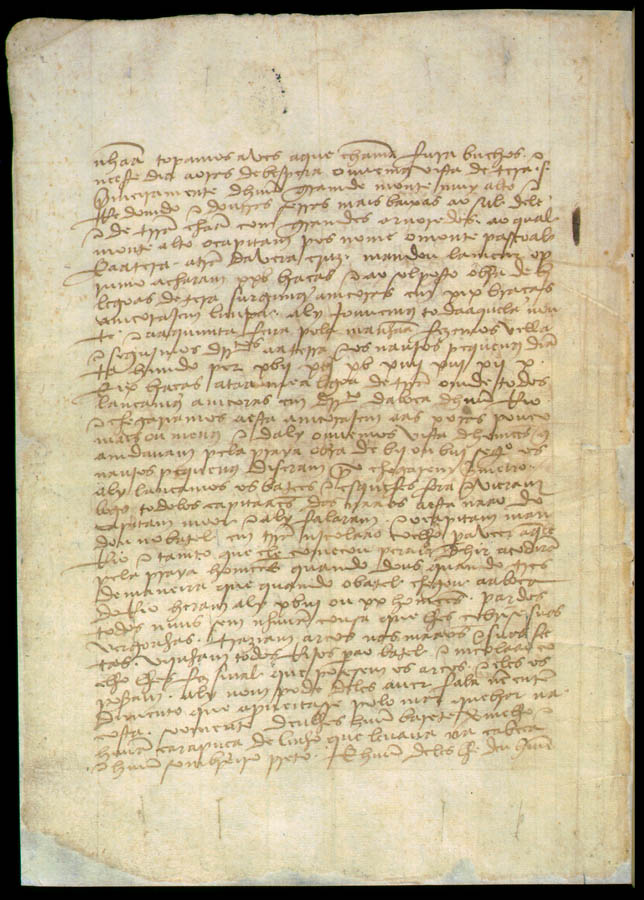 nhaã topamos aves aque chamã fura buchos. E
neeste dia aoras de bespera ouvemos vista de terra .s.
primeiramente dhuũ grande monte muy alto E
Redondo E doutras serras mais baixas ao sul dele
E de terra chaã com grandes arvoredos. ao qual
monte alto ocapitam pos nome omonte pascoal
E aatera. atera davera cruz. mandou lancar opru
mo acharam xxb bracas E ao sol posto obra de bj
legoas de tera surgimos amcoras em xix bracas
amcorajem limpa. aly jouvemos todaaquela nou
te. E aaquimta feira pela manhaã fezemos vella
E seguimos direitos aatera E os navios pequenos diãte
himdo per xbij xbj xb xiiij xiij xij x
E ix bracas ataa mea legoa de terra omde todos
lancamos amcoras em direito daboca dhuũ Rio
E chegariamos aesta amcorajem aas x oras pouco
mais ou menos E daly ouvemos vista dhomeẽs q̃
amdavam pela praya obra de bij ou biij segº os
navios pequenos diseram por chegarem primeiro.
aly lancamos os batees E esquifes fora E vieram
logo todolos capitaães das naaos aesta naao do
capitam moor E aly falaram. E ocapitam man
dou no batel em terra nicolaao coelho pa veer aqle
Rio E tamto que ele comecou pera la dhir acodirã
pela praya homeẽs quando dous quando tres
de maneira que quando obatel chegou aaboca
do Rio heram aly xbiij ou xx homeẽs pardos
todos nuus sem nhuũa cousa que lhes cobrise suas
vergonhas. traziam arcos nas maãos E suas see
tas. vijnham todos Rijos pao batel E nicolaao co
elho lhes fez sinal que posesem os arcos. E eles os
poseram. aly nom pode deles aver fala nẽ enten
dimento que aproveitase polo mar quebrar na
costa. soomente deulhes huũ barete vermelho E
huũa carapuca de linho que levava na cabeca
E huũ sombreiro preto. E huũ deles lhe deu huũ